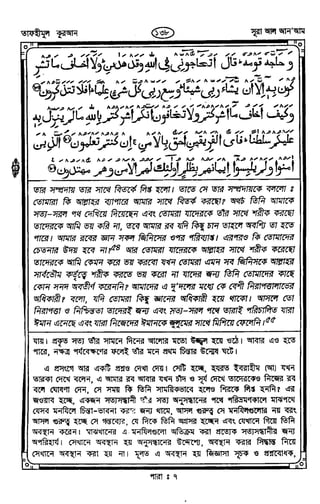 তাফহীমুল কুরআন
১৩৮
সূরা আল আন'আম
وَحَاجَّهٗ قَوْمُهٗ ؕ قَالَ اَتُحَآجُّوْٓنِّيْ فِي اللّٰهِ وَقَدْ هَدٰىنِ ؕ وَلَآ اَخَافُ مَا تُشْرِ
كُوْنَ بِهٖٓ اِلَّآ اَنْ يَّشَآءَ رَبِّيْ شَيْئًا ؕ وَسِعَ رَبِّيْ كُلَّ شَيْءٍ عِلْمًا ؕ اَفَلَا تَتَذَكَّرُوْنَ
وَكَيْفَ اَخَافُ مَآ اَشْرَكْتُمْ وَلَا تَخَافُوْنَ اَنَّكُمْ اَشْرَكْتُمْ بِاللّٰهِ مَا لَمْ يُنَزِّلْ بِهٖ
عَلَيْكُمْ سُلْطٰنًا ؕ فَاَيُّ الْفَرِيْقَيْنِ اَحَقُّ بِالْاَمْنِ ۚ اِنْ كُنْتُمْ تَعْلَمُوْنَ اَلَّذِيْنَ
اٰمَنُوْا وَلَمْ يَلْبِسُوْٓا اِيْمَانَهُمْ بِظُلْمٍ اُولٰٓئِكَ لَهُمُ الْاَمْنُ وَهُمْ مُّهْتَدُوْنَ
তার সম্প্রদায় তার সাথে বিতর্কে লিপ্ত হলো। তাতে সে তার সম্প্রদায়কে বললো ঃ
তোমরা কি আল্লাহর ব্যাপারে আমার সাথে বিতর্ক করছো? অথচ তিনি আমাকে
সত্য-সরল পথ দেখিয়ে দিয়েছেন এবং তোমরা যাদেরকে তাঁর সাথে শরীক করছো
তাদেরকে আমি ভয় করি না, তবে আমার রব যদি কিছু চান তাহলে অবশ্যি তা হতে
পারে। আমার রবের জ্ঞান সকল জিনিসের ওপর পরিব্যাপ্ত। এরপরও কি তোমাদের
চেতনার উদয় হবে না? আর তোমরা যাদেরকে আল্লাহর সাথে শরীক করছো
তাদেরকে আমি কেমন করে ভয় করবো যখন তোমরা এমন সব জিনিসকে আল্লাহর
সার্বভৌম কর্তৃত্বে শরীক করতে ভয় করো না যাদের জন্য তিনি তোমাদের কাছে
কোন সনদ অবতীর্ণ করেননি? আমাদের এ দু'দলের মধ্যে কে বেশী নিরাপত্তালাভের
অধিকারী? বলো, যদি তোমরা কিছু জ্ঞানের অধিকারী হয়ে থাকো। আসলে তো
নিরাপত্তা ও নিশ্চিন্ততা তাদেরই জন্য এবং সত্য-সরল পথে তারাই পরিচালিত যারা
ঈমান এনেছে এবং যারা নিজেদের ঈমানকে জুলুমের সাথে মিশিয়ে ফেলেনি।
যায়। প্রকৃত সত্য তাঁর সামনে দিনের আলোর মতো উজ্জ্বল হয়ে ওঠে। আবার এও হতে
পারে, নক্ষত্র পর্যবেক্ষণের ফলেই তাঁর মনে প্রথম চিন্তার উদয় ঘটে।
এ প্রসংগে আর একটি প্রশ্নও দেখা দেয়। সেটি হচ্ছে, হযরত ইবরাহীম (আ) যখন
তারকা দেখে বলেন, এ আমার রব আবার যখন চাঁদ ও সূর্য দেখে তাদেরকেও নিজের রব
বলে ঘোষণা দেন, সে সময় কি তিনি সাময়িকভাবে হলেও শিরকে লিপ্ত হননি? এর
জওয়াব হচ্ছে, একজন সত্যসন্ধানী তাঁর সত্য অনুসন্ধানের পথে পরিভ্রমণকালে মাঝপথে
যেসব মনযিলে চিন্তা-ভাবনা করার জন্য থামে, আসল গুরুত্ব সে মনযিলগুলোর নয় বরং
আসল গুরুত্ব হচ্ছে সে গন্তব্যের, যে দিকে তিনি অগ্রসর হচ্ছেন এবং যেখানে গিয়ে তিনি
অবস্থান করেন। মাঝখানের এ মনযিলগুলো অতিক্রম করা প্রত্যেক সত্যসন্ধানীর জন্য
অপরিহার্য। সেখানে অবস্থান হয় অনুসন্ধানের উদ্দেশ্যে, অবস্থান করার সিদ্ধান্ত নিয়ে
সেখানে অবস্থান করা হয় না। মূলত এ অবস্থান হয় জিজ্ঞাসা সূচক ও প্রয়োজনে,
পারা ঃ ৭